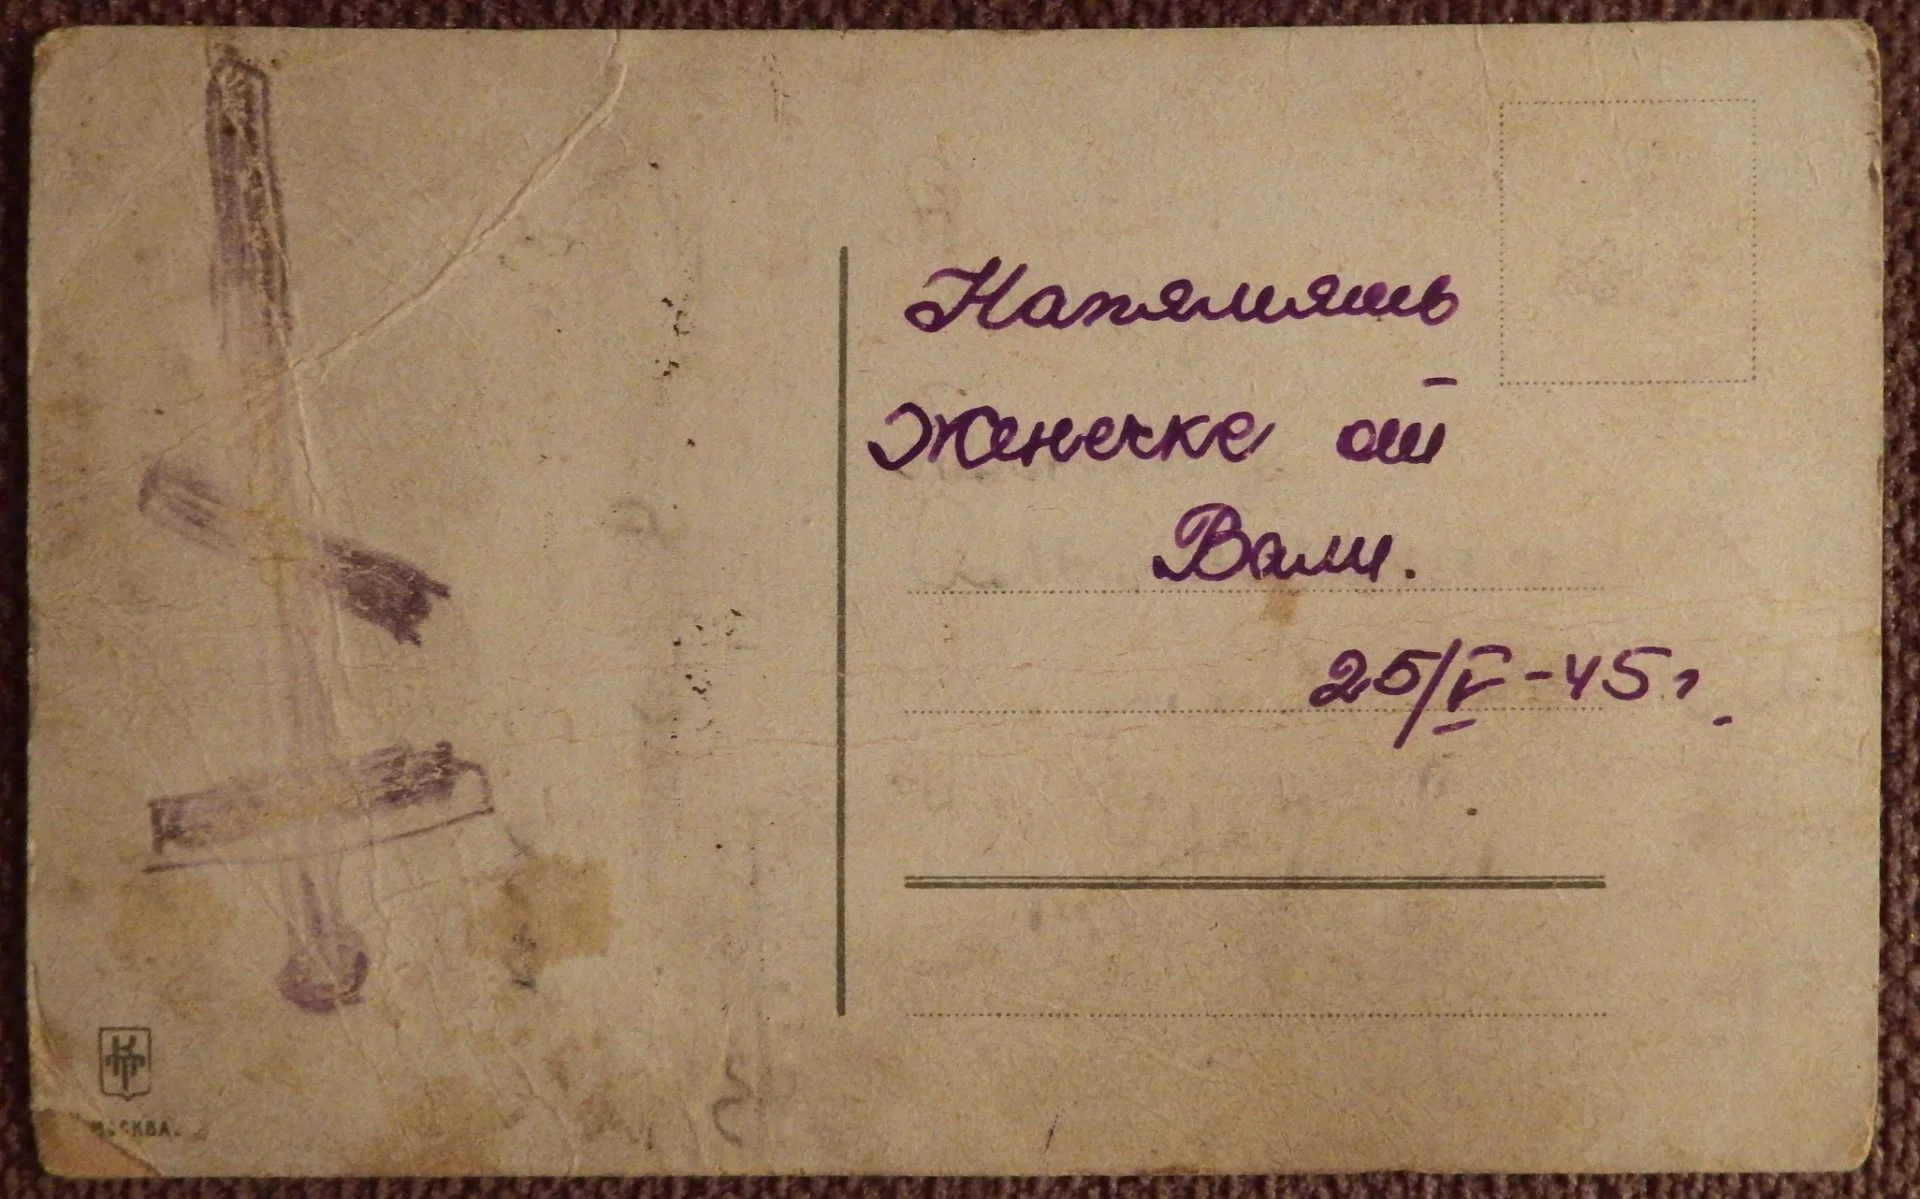 На память
Женечке от
Вали.
25/V-45 г.
МОСКВА.